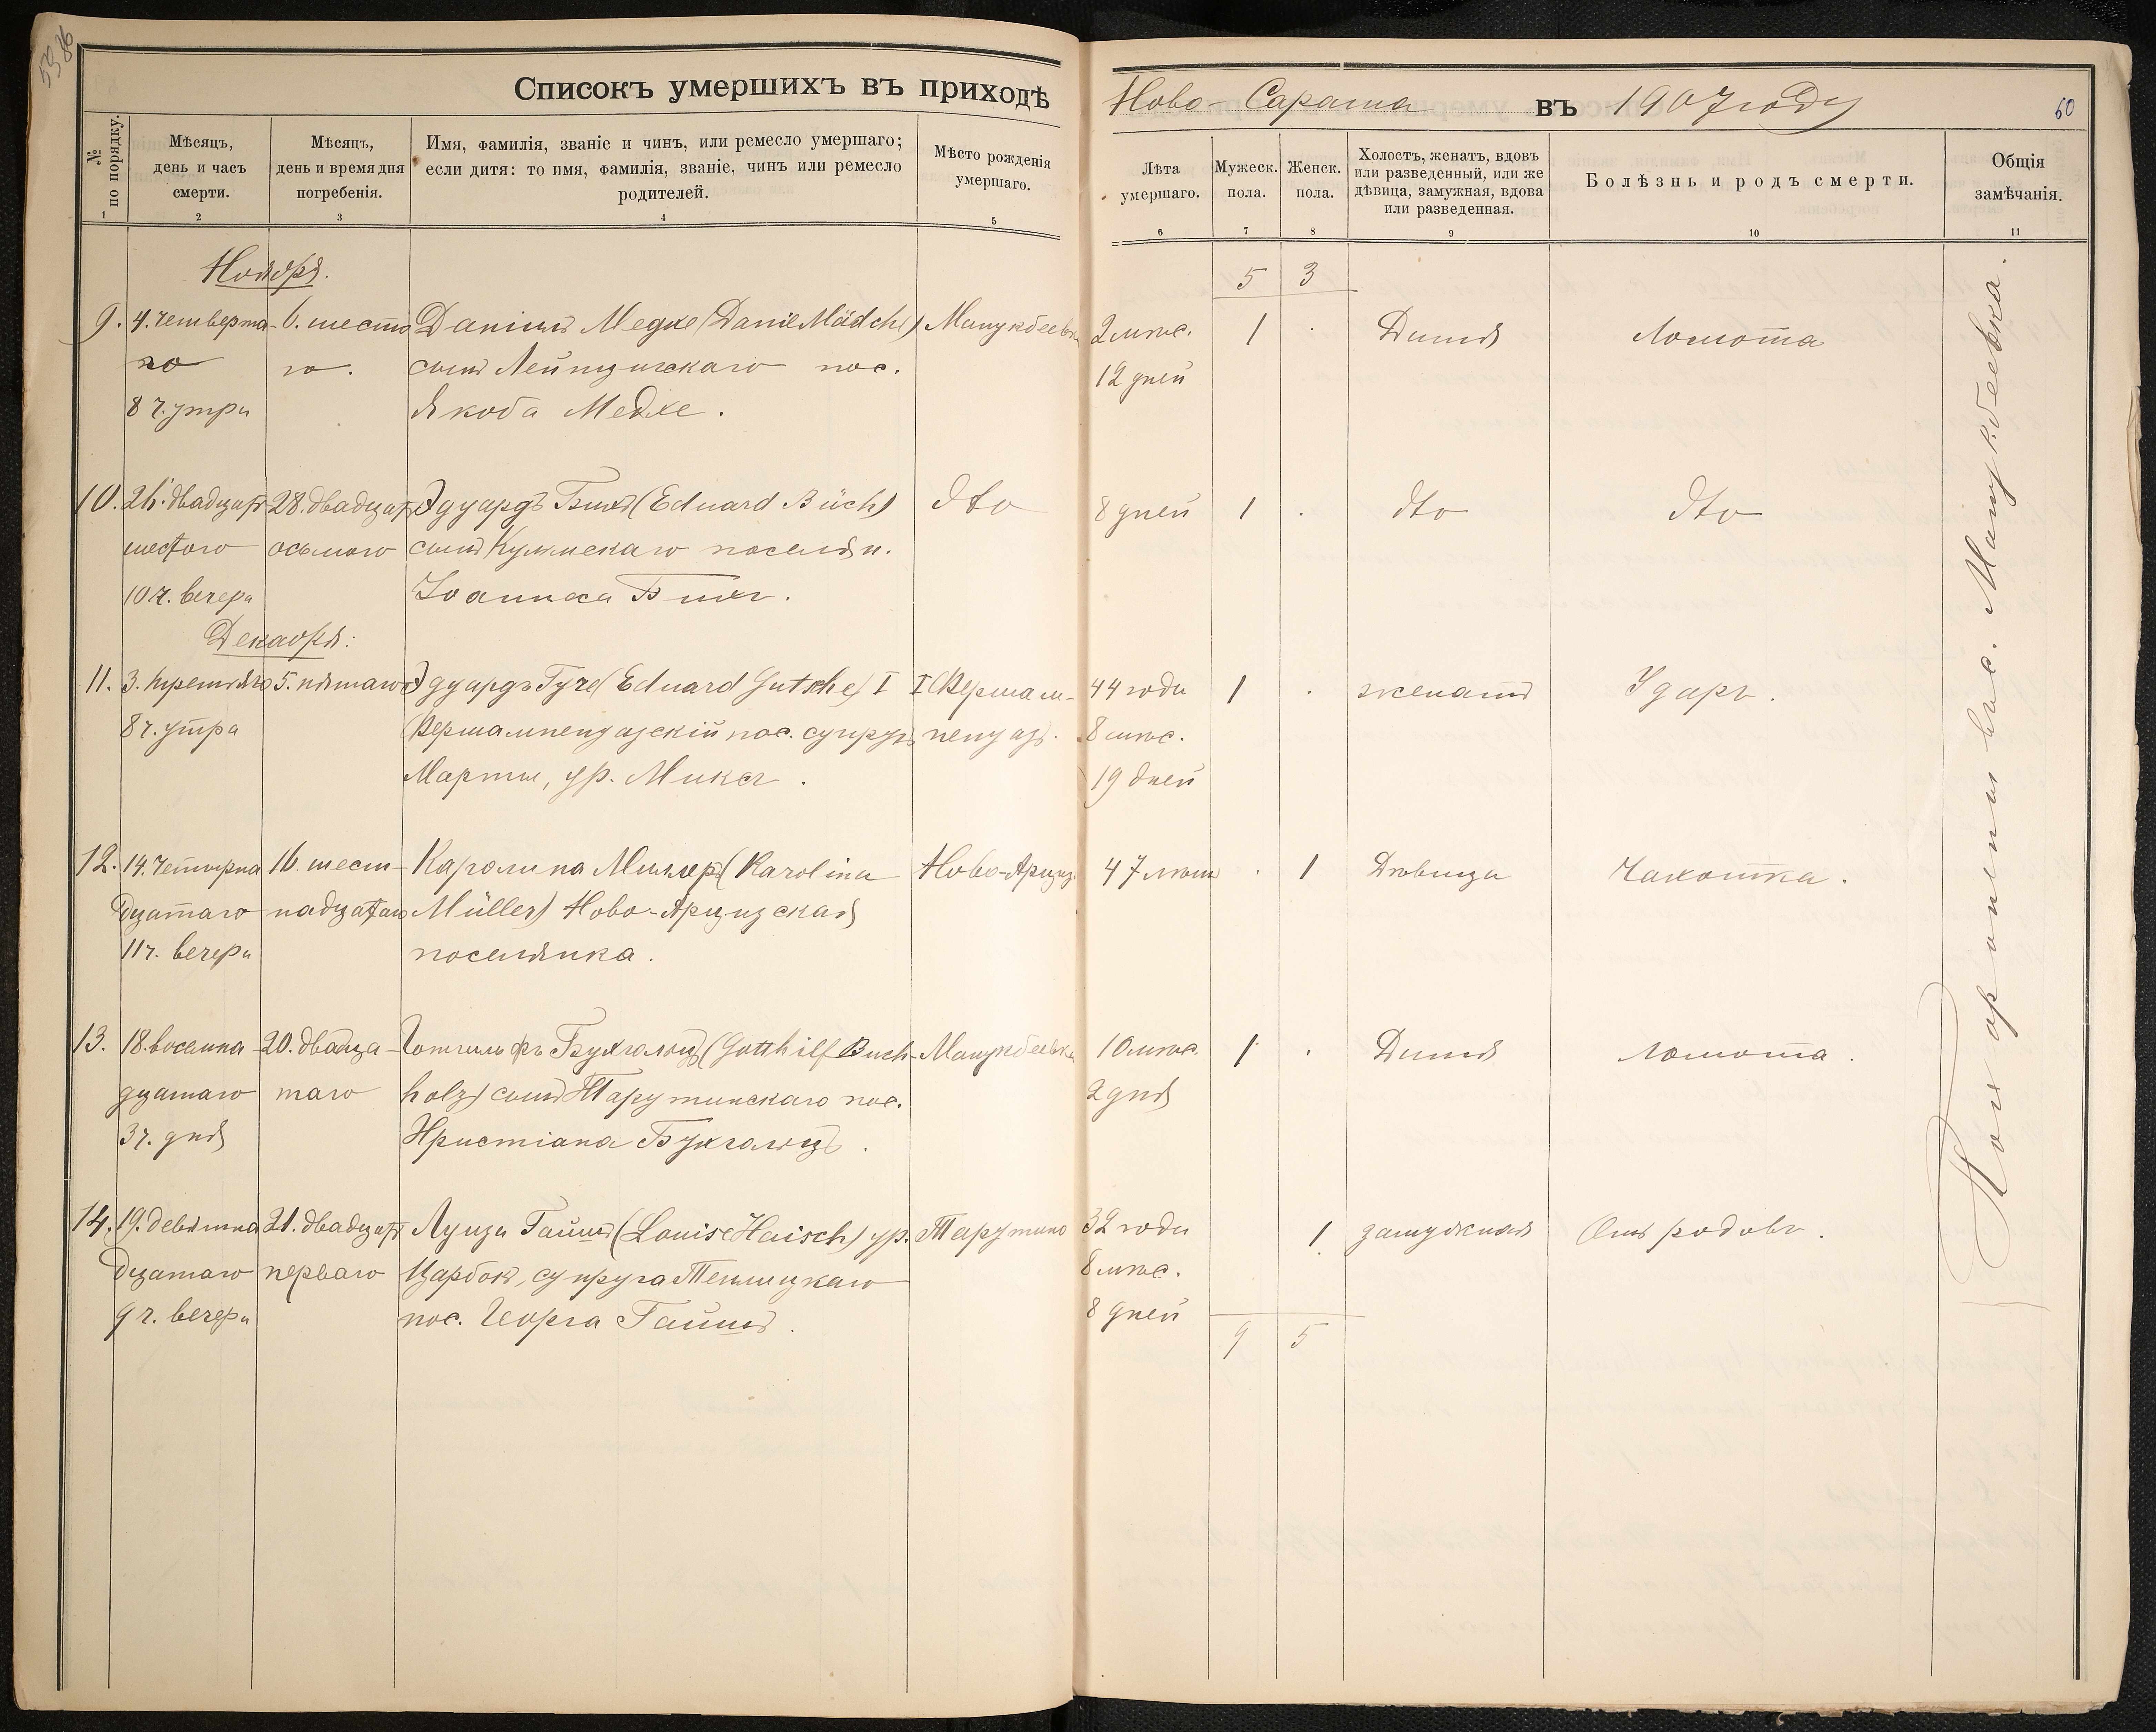 5386
Списокъ умершихъ въ приходѣ Ново-Сарата въ 1907 году
60
№ по порядку.
Мѣсяцъ, день и часъ смерти.
Мѣсяцъ, день и время дня погребенія.
Имя, фамилія, званіе и чинъ, или ремесло умершаго; если дитя: то имя, фамилія, званіе, чинъ или ремесло родителей.
Мѣсто рожденія умершаго.
Лѣта умершаго.
Мужеск. пола.
Женск. пола.
Холостъ, женатъ, вдовъ или разведенный, или же дѣвица, замужная, вдова или разведенная.
Болѣзнь и родъ смерти.
Общія замѣчанія.
1 2 3 4 5 6 7 8 9 10 11
Ноября.
5 3
9. 4. четверта- 6. шесто Даніилъ Медхе (Daniel Mädche) Манукбеевка 2 мѣс. 1 . Дитя Ломота
го го. сынъ Лейпцигскаго пос. 12 дней
8 ч. утра Якоба Медхе.
10. 26. двадцат 28. двадцат Эдуардъ Бихъ (Eduard Büch) dto 8 дней 1 . dto dto
шестого осьмого сынъ Кульмскаго поселян.
10 ч. вечера Іоаннеса Бихъ.
Декабря:
11. 3. третьяго 5. пятаго Эдуардъ Гуче (Eduard Gutsche) I I Фершам- 44 года 1 . женатъ Ударъ.
8 ч. утра Фершампенуазскій пос. супругъ пенуазъ. 8 мѣс.
Марты, ур. Миксъ. 19 дней
12. 14. Четырна 16. шест- Каролина Миллеръ (Karolina Ново-Арцизъ 47 лѣтъ . 1 Дѣвица Чахотка.
дцатаго надцатаго Müller) Ново-Арцизская
11 ч. вечера поселянка.
13. 18. восемна- 20. двадца- Готгильфъ Бухгольцъ (Gotthilf Buch- Манукбеевка 10 мѣс. 1 . Дитя Ломота.
дцатаго таго holz) сынъ Тарутинскаго пос. 2 дня
3 ч. дня Христіана Бухгольцъ.
14. 19. девятна 21. двадцат Луиза Гайшъ (Louise Haisch) ур. Тарутино 32 года 1. замужная Отъ родовъ.
дцатаго перваго Царбокъ, супруга Теплицкаго 8 мѣс.
9 ч. вечера пос. Георга Гайшъ. 8 дней
9 5
Похоронены въ с. Манукбеевка.